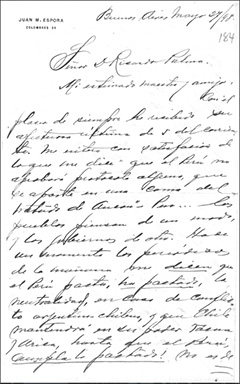 JUAN M. ESPORA
Buenos Aires Mayo 27/98.
184
Señor D. Ricardo Palma.
Mi estimado maestro y amigo:
Con el
placer de siempre he recibido su
afectuosa
de 5 del corrien
te. Me entero con satisfacción de
lo que me dice que el Perú no
aprobará protocolo alguno que
se aparte en una coma del
tratado de Ancón. Pero... los
pueblos piensan de un modo,
y los gobiernos de otro. Hace
un momento los periódicos
de la mañana me dicen que
el Perú pacta, ha pactado, la
neutralidad, en caso de conflic
to argentino chileno, y que Chile
mantendrá en su poder Tacna
y Arica, hasta que el Perú
cumpla lo pactado! No es de